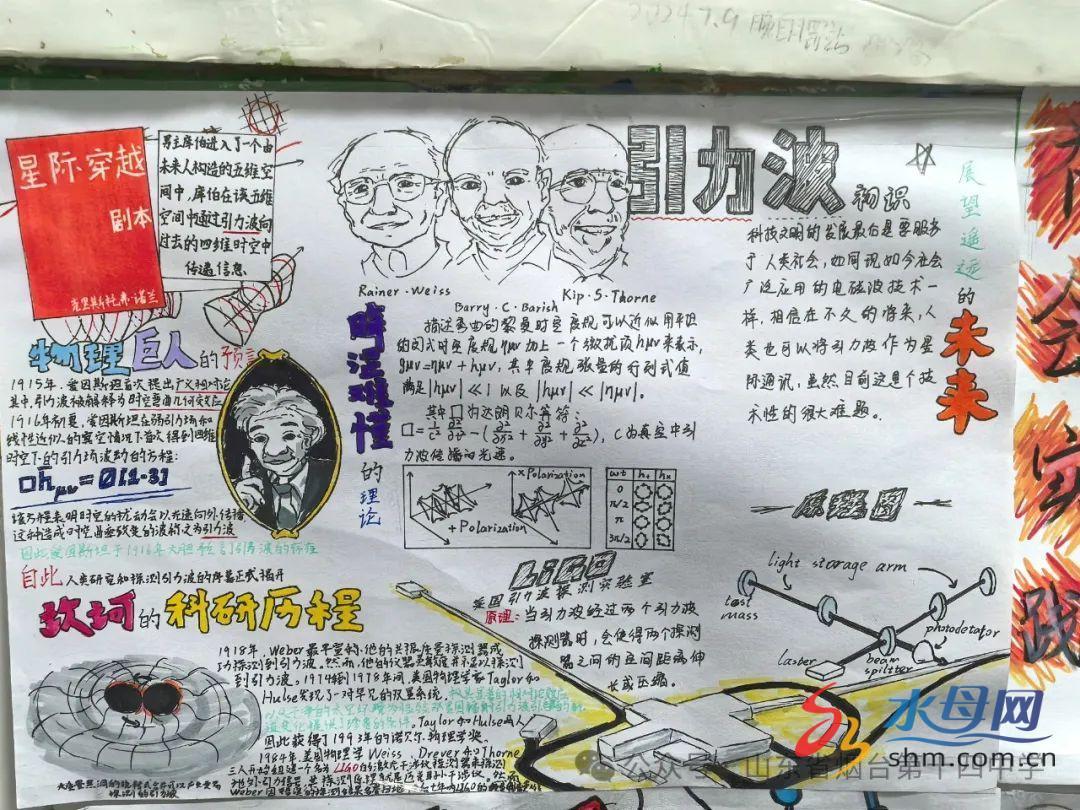 2024.7.9
星际穿越
剧本
克里斯托弗·诺兰
男主库伯进入了一个由
未来人构造的五维空
间中,库伯在该五维
空间中通过引力波向
过去的四维时空中
传递信息.
Rainer·Weiss
Barry·C·Barish
Kip·S·Thorne
引力波
初识
展望遥远的未来
科技文明的发展最后是要服务
于人类社会,如同现如今社会
广泛应用的电磁波技术一
样,相信在不久的将来,人
类也可以将引力波作为星
际通讯,虽然目前这是个技
术性的很大难题。
物理巨人的预言
1915年,爱因斯坦首次提出广义相对论
其中,引力波被解释为时空弯曲几何效应
1916年初夏,爱因斯坦在弱引力场和
线性近似的真空情况下首次得到四维
时空下的引力场波动的方程:
□h̄μν=0[1-3]
该方程表明时空的扰动会以光速向外传播
这种造成时空
的波称之为引力波
因此爱因斯坦于1916年大胆预言引力波的存在
自此人类研究和探测引力波的序幕正式揭开
晦涩难懂的理论
描述弯曲的黎曼时空度规可以近似用平坦
的闵式时空度规ημν加上一个微扰项hμν来表示,
gμν=ημν+hμν,其中度规张量的行列式值
满足|hμν|≪1以及|hμν|≪|ημν|.
其中□为达朗贝尔算符:
□=1/c² ∂²/∂t²-(∂²/∂x²+∂²/∂y²+∂²/∂z²),C为真空中引
力波传播的光速。
+Polarization
×Polarization
wt h+ hx
0
π/2
π
3π/2
LIGO
美国引力波探测实验室
原理:当引力波经过两个引力波
探测器时,会使得两个探测
器之间的空间距离伸
长或压缩。
原理图
light storage arm
test
mass
photodetector
laster
beam
splitter
坎坷的科研历程
1918年,Weber最早宣称,他的共振质量探测器成
功探测到引力波。然而,他的仪器灵敏度并不足以探测
到引力波。1974到1978年间,美国物理学家Taylor和
Hulse发现了一对罕见的双星系统.
Taylor和Hulse两人
因此获得了1993年的诺贝尔物理学奖。
1984年美国物理学Weiss、Drever和Thorne
三人开始组建一个名为LIGO的
公众号·山东省烟台第十四中学
水母网
shm.com.cn
实
践